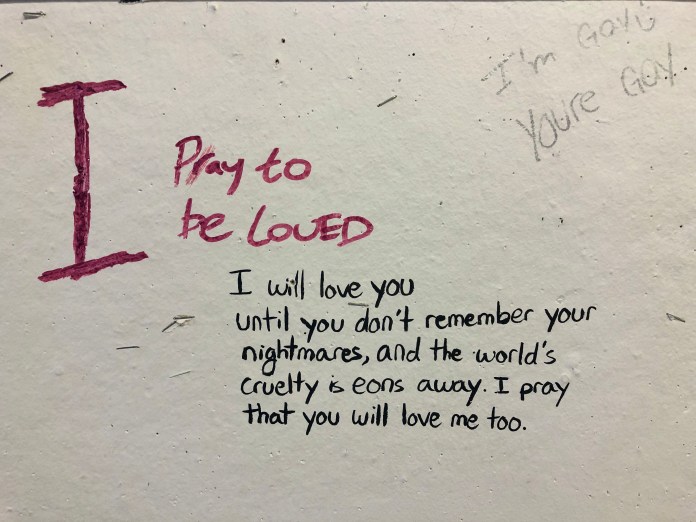 I'm Gay
Youre Gay
I
Pray to
be LOVED
I will love you
until you don't remember your
nightmares, and the world's
cruelty is eons away. I pray
that you will love me too.